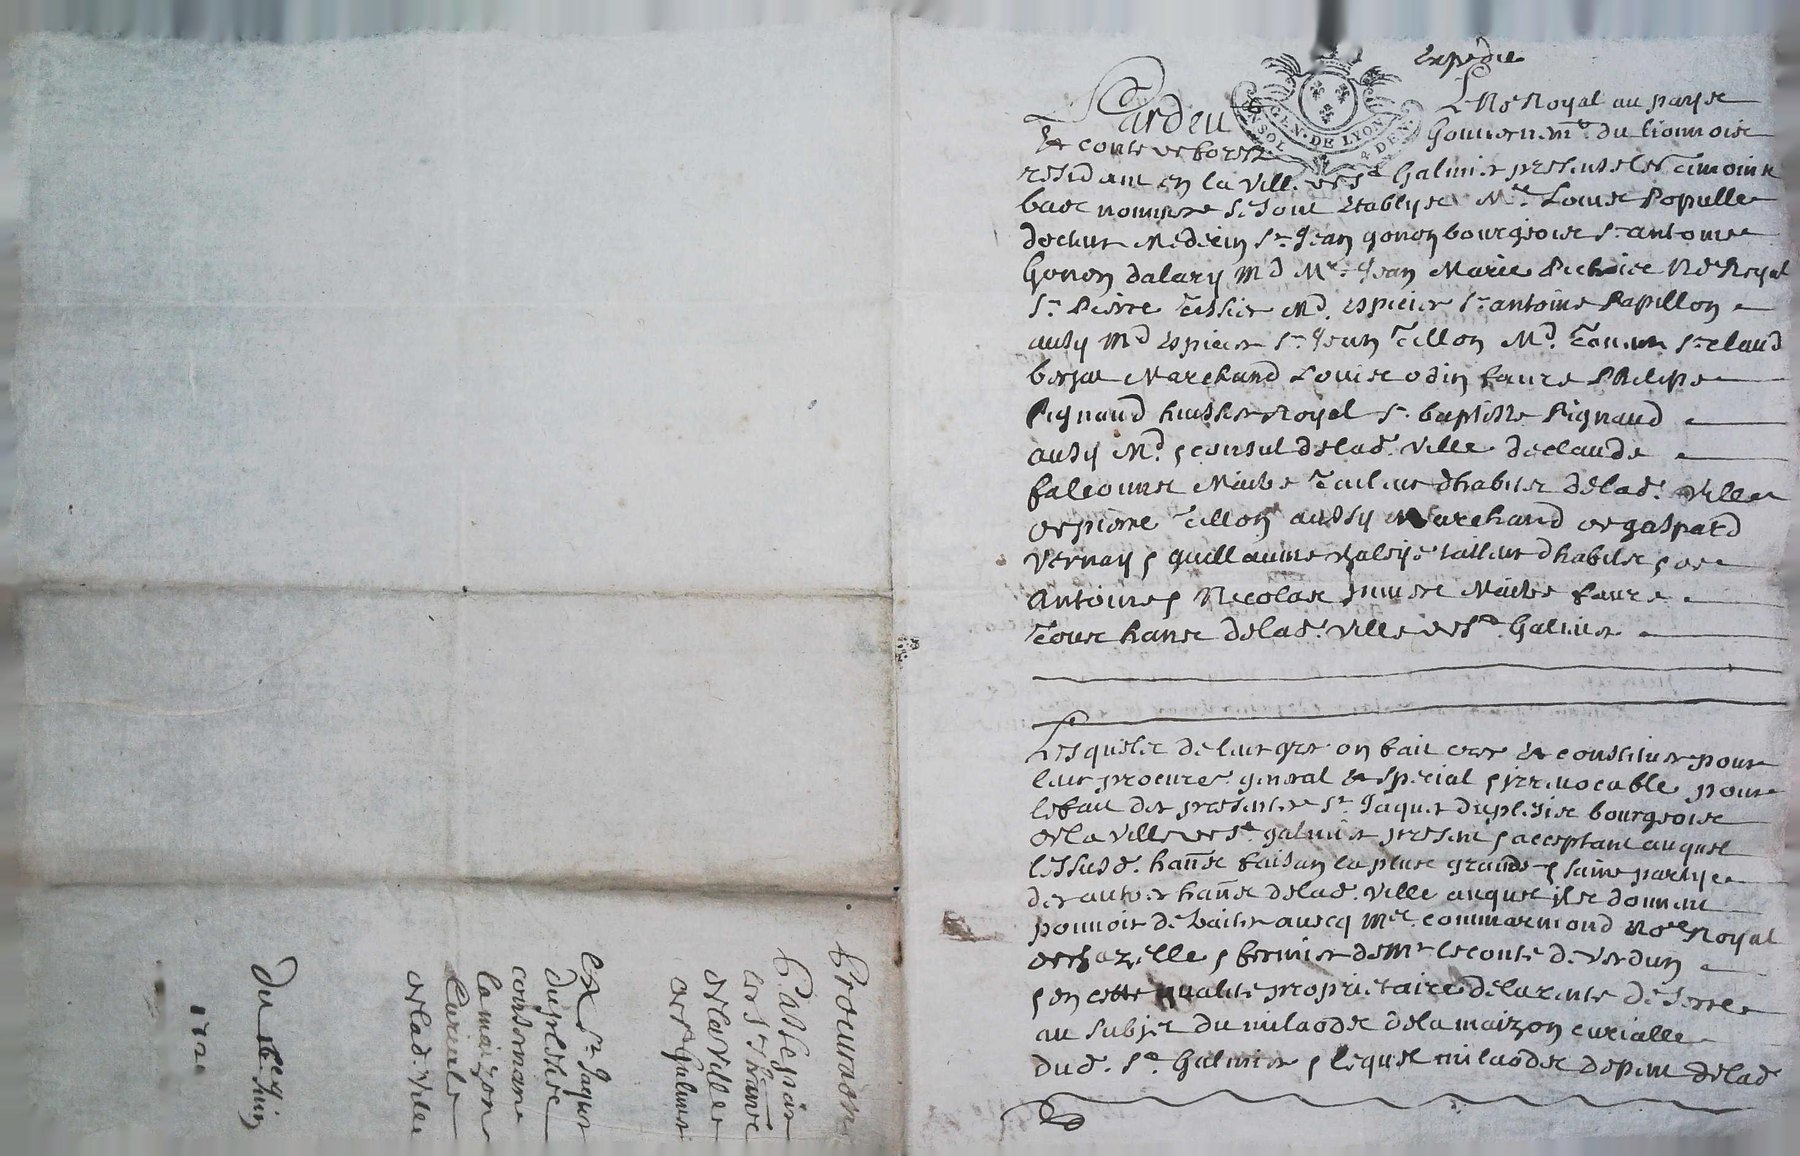 Expedié
Pardeu
Nre Royal au pays
Gouvernemt du lionnois
& conté de forest
GEN. DE LYON
4 DEN.
residant en la ville de St Galmier presents les temoins
bas nommes se sont establys Me Louis Populle
docteur Medecin Sr Jean gonon bourgeois Sr antoine
Gonon dalary Md Me Jean Marie Nre Royal
Sr Pierre Tessier Md espicier Sr antoine Papillon
ausy Md espicier Sr Jean Tillon Md Sr claud
Marchand Louis odin faure Philipe
Pignaud huissier Royal Sr baptiste Pignaud
ausy Md & consul de lad. ville de claude
falconnet Maitre Tailleur dhabits de lad. ville
de pierre Tillon aussy Marchand de gaspard
Vernay & guillaume tailleur dhabits & de
Antoine & Nicolas Maitre faure
Tous hans de lad. ville de St Galmier
Lesquels de leur gre on fait cree & constitue pour
leur procureur general & special & irrevocable pour
le fait des presentes Sr Jaques duplessis bourgeois
de la ville de St galmier present & acceptant auquel
lessusd. hans faisan la plus grande & saine partye
des autres hans de lad. ville auquel ils donnent
pouvoir de traiter avecq Me commarmond Nore Royal
de chazelle & fermier de Mr le conte de Verdun
& en cette qualité proprietaire de la rente de
au subjet du milaods de la maizon curialle
dud. St Galmier & lequel milaods depent de lad
Procuraon
Passe par
les Srs hans
de la ville
de St Galmier
et Sr Jaques
duplessis
consernant
la maizon
Curiale
de lad. ville
Du Juin
172